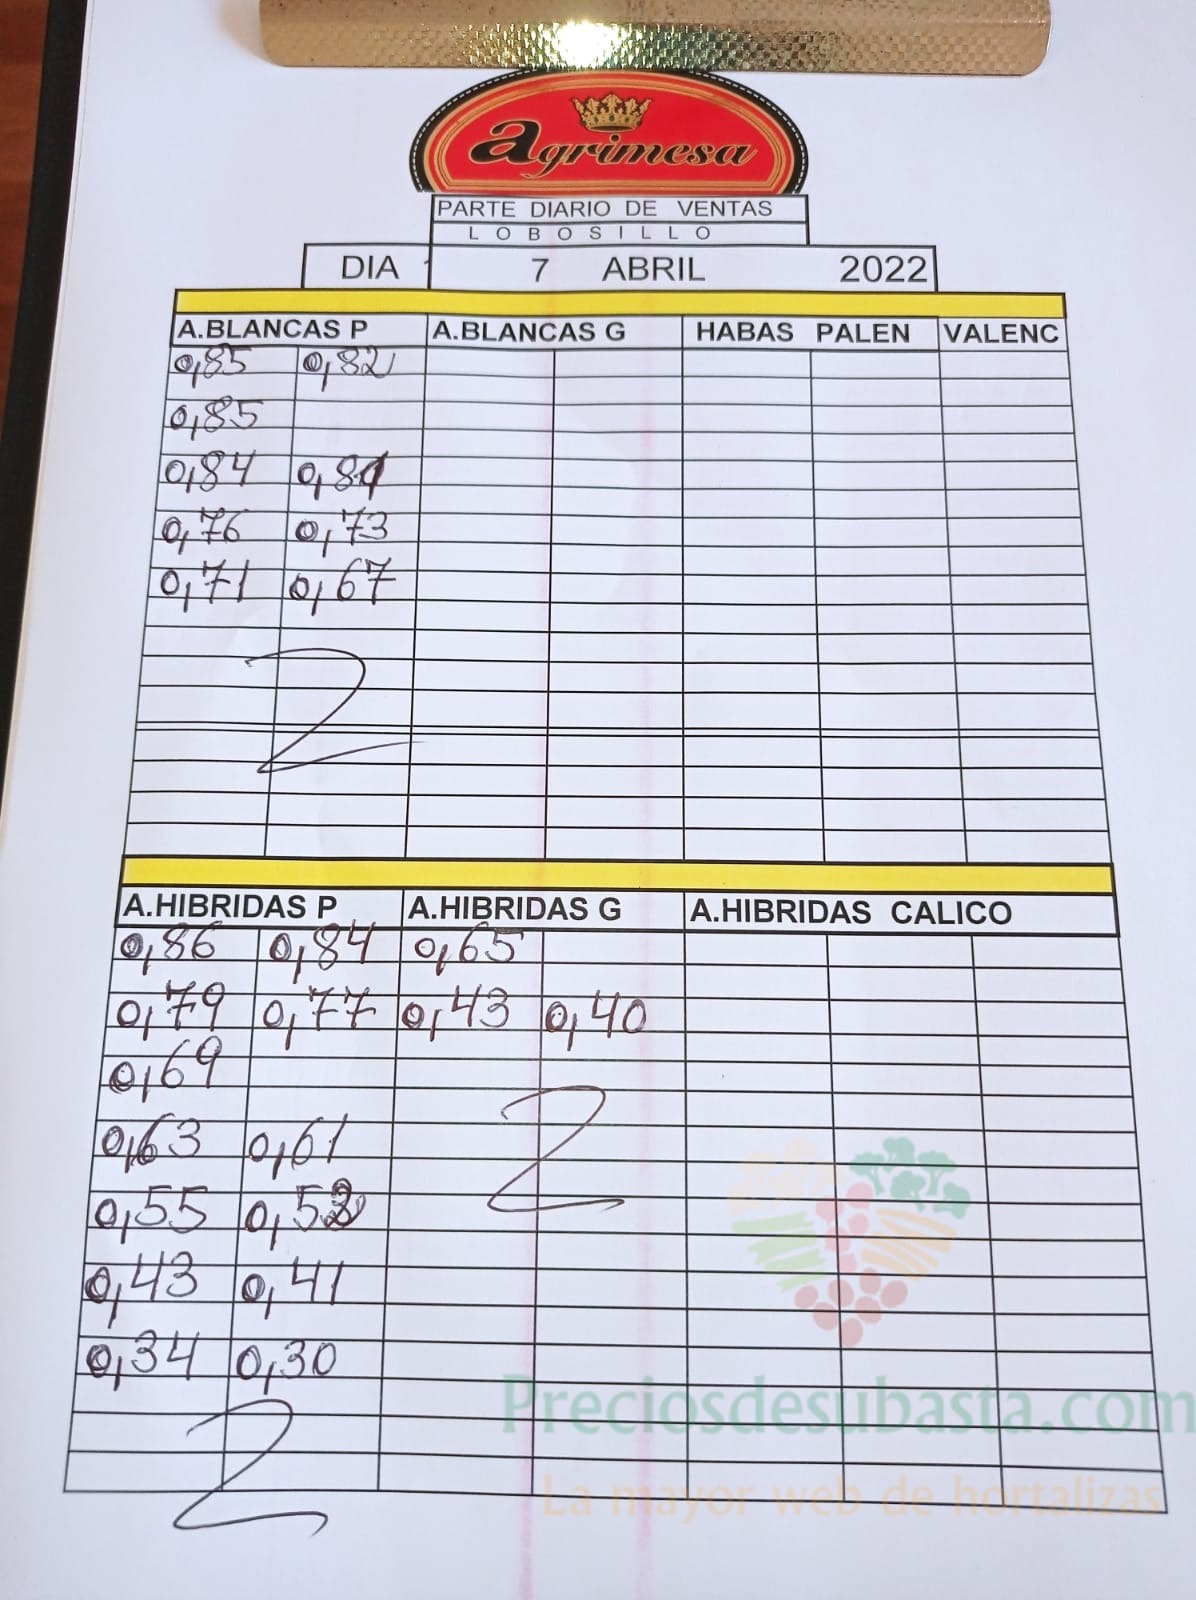 agrimesa
PARTE DIARIO DE VENTAS
LOBOSILLO
DIA 7 ABRIL 2022
A.BLANCAS P A.BLANCAS G HABAS PALEN VALENC
0,85 0,82
0,85
0,84 0,81
0,76 0,73
0,71 0,67
A.HIBRIDAS P A.HIBRIDAS G A.HIBRIDAS CALICO
0,86 0,84 0,65
0,79 0,77 0,43 0,40
0,69
0,63 0,61
0,55
0,43 0,41
0,34 0,30
Preciosdesubasta.com
La mayor web de hortalizas